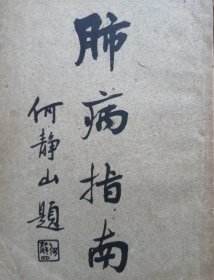 肺病指南
何静山题